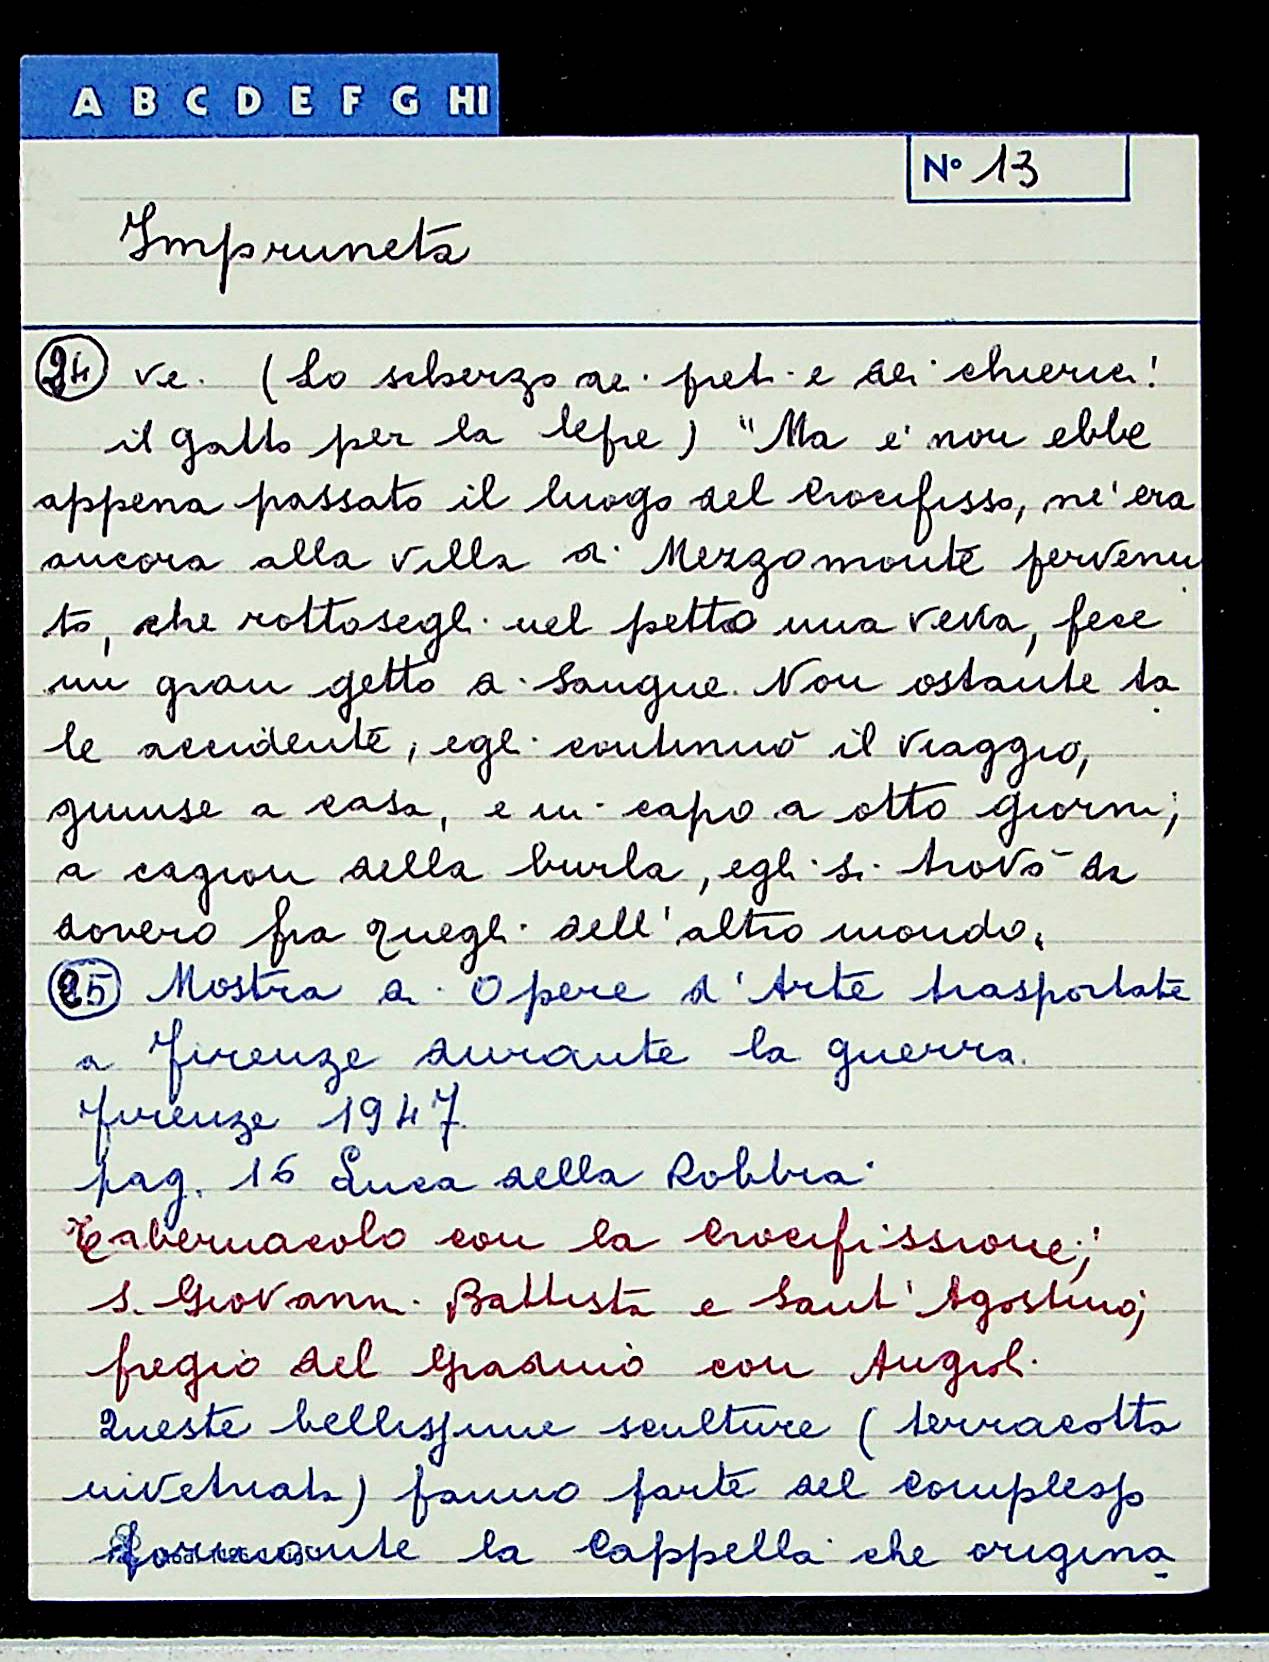 A B C D E F G HI
N° 13
Impruneta
24 ve. (Lo scherzo dei preti e dei chierici!
il gatto per la lepre) "Ma e' non ebbe
appena passato il luogo del Crocifisso, ne' era
ancora alla villa di Mezzomonte pervenu
to, che rottosegli nel petto una vena, fece
un gran getto di sangue. Non ostante ta
le accidente, egli continuò il viaggio,
giunse a casa, e in capo a otto giorni,
a cagion della burla, egli si trovò da
dovero fra quegli dell'altro mondo.
25 Mostra di Opere d'Arte trasportate
a Firenze durante la guerra.
Firenze 1947.
pag. 16 Luca della Robbia
Tabernacolo con la Crocifissione;
S. Giovanni Battista e Sant'Agostino;
fregio del gradino con Angioli.
Queste bellissime sculture (terracotta
invetriata) fanno parte del complesso
formante la Cappella che origina